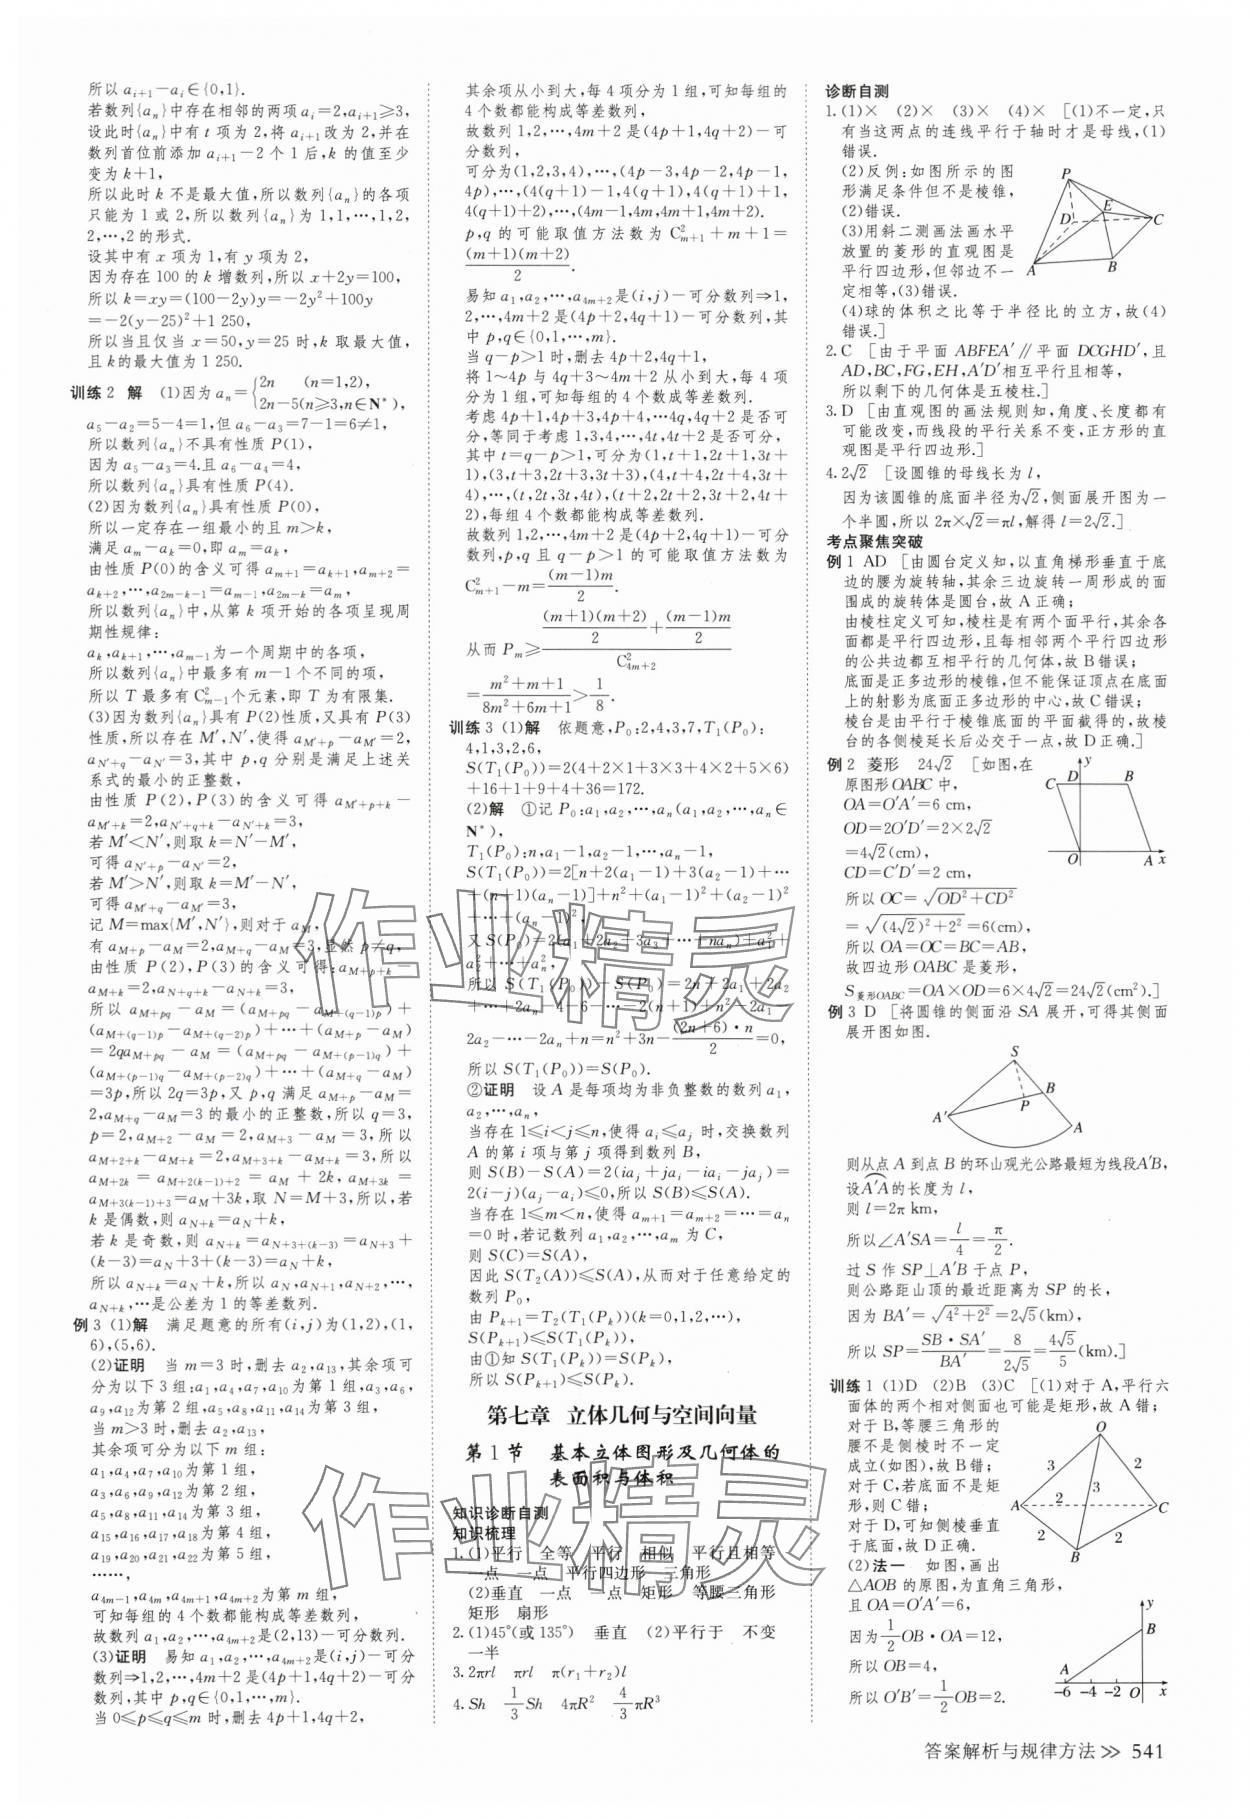 所以 aᵢ₊₁－aᵢ∈{0,1}.
若数列{aₙ}中存在相邻的两项 aᵢ=2,aᵢ₊₁≥3,
设此时{aₙ}中有 t 项为 2,将 aᵢ₊₁ 改为 2,并在
数列首位前添加 aᵢ₊₁－2 个 1 后,k 的值至少
变为 k+1,
所以此时 k 不是最大值,所以数列{aₙ}的各项
只能为 1 或 2,所以数列{aₙ}为 1,1,…,1,2,
2,…,2 的形式.
设其中有 x 项为 1,有 y 项为 2,
因为存在 100 的 k 增数列,所以 x+2y=100,
所以 k=xy=(100－2y)y=－2y²+100y
=－2(y－25)²+1 250,
所以当且仅当 x=50,y=25 时,k 取最大值,
且 k 的最大值为 1 250.
训练 2 解 (1)因为 aₙ={2n (n=1,2), 2n－5(n≥3,n∈N*),
a₅－a₂=5－4=1,但 a₆－a₃=7－1=6≠1,
所以数列{aₙ}不具有性质 P(1),
因为 a₅－a₃=4.且 a₆－a₄=4,
所以数列{aₙ}具有性质 P(4).
(2)因为数列{aₙ}具有性质 P(0),
所以一定存在一组最小的且 m>k,
满足 aₘ－aₖ=0,即 aₘ=aₖ,
由性质 P(0)的含义可得 aₘ₊₁=aₖ₊₁,aₘ₊₂=
aₖ₊₂,…,a₂ₘ₋ₖ₋₁=aₘ₋₁,a₂ₘ₋ₖ=aₘ,
所以数列{aₙ}中,从第 k 项开始的各项呈现周
期性规律:
aₖ,aₖ₊₁,…,aₘ₋₁为一个周期中的各项,
所以数列{aₙ}中最多有 m－1 个不同的项,
所以 T 最多有 C²ₘ₋₁个元素,即 T 为有限集.
(3)因为数列{aₙ}具有 P(2)性质,又具有 P(3)
性质,所以存在 M′,N′,使得 a_{M′+p}－a_{M′}=2,
a_{N′+q}－a_{N′}=3,其中 p,q 分别是满足上述关
系式的最小的正整数,
由性质 P(2),P(3)的含义可得 a_{M′+p+k}－
a_{M′+k}=2,a_{N′+q+k}－a_{N′+k}=3,
若 M′<N′,则取 k=N′－M′,
可得 a_{N′+p}－a_{N′}=2,
若 M′>N′,则取 k=M′－N′,
可得 a_{M′+q}－a_{M′}=3.
记 M=max{M′,N′},则对于 a_M,
有 a_{M+p}－a_M=2,a_{M+q}－a_M=3,显然 p≠q,
由性质 P(2),P(3)的含义可得:a_{M+p+k}－
a_{M+k}=2,a_{N+q+k}－a_{N+k}=3,
所以 a_{M+pq}－a_M=(a_{M+pq}－a_{M+(q－1)p})+
(a_{M+(q－1)p}－a_{M+(q－2)p})+…+(a_{M+p}－a_M)
=2qa_{M+pq}－a_M=(a_{M+pq}－a_{M+(p－1)q})+
(a_{M+(p－1)q}－a_{M+(p－2)q})+…+(a_{M+q}－a_M)
=3p,所以 2q=3p,又 p,q 满足 a_{M+p}－a_M=
2,a_{M+q}－a_M=3 的最小的正整数,所以 q=3,
p=2,a_{M+2}－a_M=2,a_{M+3}－a_M=3,所以
a_{M+2+k}－a_{M+k}=2,a_{M+3+k}－a_{M+k}=3,所以
a_{M+2k}=a_{M+2(k－1)}+2=a_M+2k,a_{M+3k}=
a_{M+3(k－1)}+3=a_M+3k,取 N=M+3,所以,若
k 是偶数,则 a_{N+k}=a_N+k,
若 k 是奇数,则 a_{N+k}=a_{N+3+(k－3)}=a_{N+3}+
(k－3)=a_N+3+(k－3)=a_N+k,
所以 a_{N+k}=a_N+k,所以 a_N,a_{N+1},a_{N+2},…,
a_{N+k},…是公差为 1 的等差数列.
例 3 (1)解 满足题意的所有(i,j)为(1,2),(1,
6),(5,6).
(2)证明 当 m=3 时,删去 a₂,a₁₃,其余项可
分为以下 3 组:a₁,a₄,a₇,a₁₀为第 1 组,a₃,a₆,
a₉,a₁₂为第 2 组,a₅,a₈,a₁₁,a₁₄为第 3 组,
当 m>3 时,删去 a₂,a₁₃,
其余项可分为以下 m 组:
a₁,a₄,a₇,a₁₀为第 1 组,
a₃,a₆,a₉,a₁₂为第 2 组,
a₅,a₈,a₁₁,a₁₄为第 3 组,
a₁₅,a₁₆,a₁₇,a₁₈为第 4 组,
a₁₉,a₂₀,a₂₁,a₂₂为第 5 组,
……,
a₄ₘ₋₁,a₄ₘ,a₄ₘ₊₁,a₄ₘ₊₂为第 m 组,
可知每组的 4 个数都能构成等差数列,
故数列 a₁,a₂,…,a₄ₘ₊₂是(2,13)－可分数列.
(3)证明 易知 a₁,a₂,…,a₄ₘ₊₂是(i,j)－可分
数列⇒1,2,…,4m+2 是(4p+1,4q+2)－可分
数列,其中 p,q∈{0,1,…,m}.
当 0≤p≤q≤m 时,删去 4p+1,4q+2,
其余项从小到大,每 4 项分为 1 组,可知每组的
4 个数都能构成等差数列,
故数列 1,2,…,4m+2 是(4p+1,4q+2)－可
分数列,
可分为(1,2,3,4),…,(4p－3,4p－2,4p－1,
4p),…,(4(q+1)－1,4(q+1),4(q+1)+1,
4(q+1)+2),…,(4m－1,4m,4m+1,4m+2).
p,q 的可能取值方法数为 C²ₘ₊₁+m+1=
(m+1)(m+2)/2.
易知 a₁,a₂,…,a₄ₘ₊₂是(i,j)－可分数列⇒1,
2,…,4m+2 是(4p+2,4q+1)－可分数列,其
中 p,q∈{0,1,…,m}.
当 q－p>1 时,删去 4p+2,4q+1,
将 1~4p 与 4q+3~4m+2 从小到大,每 4 项
分为 1 组,可知每组的 4 个数成等差数列.
考虑 4p+1,4p+3,4p+4,…4q,4q+2 是否可
分,等同于考虑 1,3,4,…,4t,4t+2 是否可分,
其中 t=q－p>1,可分为(1,t+1,2t+1,3t+
1),(3,t+3,2t+3,3t+3),(4,t+4,2t+4,3t+
4),…,(t,2t,3t,4t),(t+2,2t+2,3t+2,4t+
2),每组 4 个数都能构成等差数列.
故数列 1,2,…,4m+2 是(4p+2,4q+1)－可分
数列,p,q 且 q－p>1 的可能取值方法数为
C²ₘ₊₁－m=(m－1)m/2.
从而 Pₘ≥((m+1)(m+2)/2+(m－1)m/2)/C²₄ₘ₊₂
=(m²+m+1)/(8m²+6m+1)>1/8.
训练 3 (1)解 依题意,P₀:2,4,3,7,T₁(P₀):
4,1,3,2,6,
S(T₁(P₀))=2(4+2×1+3×3+4×2+5×6)
+16+1+9+4+36=172.
(2)解 ①记 P₀:a₁,a₂,…,aₙ(a₁,a₂,…,aₙ∈
N*),
T₁(P₀):n,a₁－1,a₂－1,…,aₙ－1,
S(T₁(P₀))=2[n+2(a₁－1)+3(a₂－1)+…
+(n+1)(aₙ－1)]+n²+(a₁－1)²+(a₂－1)²
+…+(aₙ－1)²,
又 S(P₀)=2(a₁+2a₂+3a₃+…+naₙ)+a₁²+
a₂²+…+aₙ²,
所以 S(T₁(P₀))－S(P₀)=2n+2a₁+2a₂
+…+2aₙ－4－6－…－2(n+1)+n²－2a₁－
2a₂－…－2aₙ+n=n²+3n－(2n+6)·n/2=0,
所以 S(T₁(P₀))=S(P₀).
②证明 设 A 是每项均为非负整数的数列 a₁,
a₂,…,aₙ,
当存在 1≤i<j≤n,使得 aᵢ≤aⱼ 时,交换数列
A 的第 i 项与第 j 项得到数列 B,
则 S(B)－S(A)=2(iaⱼ+jaᵢ－iaᵢ－jaⱼ)=
2(i－j)(aⱼ－aᵢ)≤0,所以 S(B)≤S(A).
当存在 1≤m<n,使得 aₘ₊₁=aₘ₊₂=…=aₙ
=0 时,若记数列 a₁,a₂,…,aₘ 为 C,
则 S(C)=S(A),
因此 S(T₂(A))≤S(A),从而对于任意给定的
数列 P₀,
由 Pₖ₊₁=T₂(T₁(Pₖ))(k=0,1,2,…),
S(Pₖ₊₁)≤S(T₁(Pₖ)),
由①知 S(T₁(Pₖ))=S(Pₖ),
所以 S(Pₖ₊₁)≤S(Pₖ).
第七章 立体几何与空间向量
第 1 节 基本立体图形及几何体的
表面积与体积
知识诊断自测
知识梳理
1.(1)平行 全等 平行 相似 平行且相等
一点 一点 平行四边形 三角形
(2)垂直 一点 一点 矩形 等腰三角形
矩形 扇形
2.(1)45°(或 135°) 垂直 (2)平行于 不变
一半
3.2πrl πrl π(r₁+r₂)l
4.Sh 1/3Sh 4πR² 4/3πR³
诊断自测
1.(1)× (2)× (3)× (4)× [(1)不一定,只
有当这两点的连线平行于轴时才是母线,(1)
错误.
(2)反例:如图所示的图
形满足条件但不是棱锥,
(2)错误.
(3)用斜二测画法画水平
放置的菱形的直观图是
平行四边形,但邻边不一
定相等,(3)错误.
P
E
D
C
A
B
(4)球的体积之比等于半径比的立方,故(4)
错误.]
2.C [由于平面 ABFEA′∥平面 DCGHD′,且
AD,BC,FG,EH,A′D′相互平行且相等,
所以剩下的几何体是五棱柱.]
3.D [由直观图的画法规则知,角度、长度都有
可能改变,而线段的平行关系不变,正方形的直
观图是平行四边形.]
4.2√2 [设圆锥的母线长为 l,
因为该圆锥的底面半径为√2,侧面展开图为一
个半圆,所以 2π×√2=πl,解得 l=2√2.]
考点聚焦突破
例 1 AD [由圆台定义知,以直角梯形垂直于底
边的腰为旋转轴,其余三边旋转一周形成的面
围成的旋转体是圆台,故 A 正确;
由棱柱定义可知,棱柱是有两个面平行,其余各
面都是平行四边形,且每相邻两个平行四边形
的公共边都互相平行的几何体,故 B 错误;
底面是正多边形的棱锥,但不能保证顶点在底面
上的射影为底面正多边形的中心,故 C 错误;
棱台是由平行于棱锥底面的平面截得的,故棱
台的各侧棱延长后必交于一点,故 D 正确.]
例 2 菱形 24√2 [如图,在
原图形 OABC 中,
OA=O′A′=6 cm,
OD=2O′D′=2×2√2
=4√2(cm),
CD=C′D′=2 cm,
y
C
D
B
O
A
x
所以 OC=√(OD²+CD²)
=√((4√2)²+2²)=6(cm),
所以 OA=OC=BC=AB,
故四边形 OABC 是菱形,
S菱形OABC=OA×OD=6×4√2=24√2(cm²).]
例 3 D [将圆锥的侧面沿 SA 展开,可得其侧面
展开图如图.
S
B
P
A′
A
则从点 A 到点 B 的环山观光公路最短为线段A′B,
设A′A的长度为 l,
则 l=2π km,
所以∠A′SA=l/4=π/2.
过 S 作 SP⊥A′B 于点 P,
则公路距山顶的最近距离为 SP 的长,
因为 BA′=√(4²+2²)=2√5(km),
所以 SP=SB·SA′/BA′=8/2√5=4√5/5(km).]
训练 1 (1)D (2)B (3)C [(1)对于 A,平行六
面体的两个相对侧面也可能是矩形,故 A 错;
对于 B,等腰三角形的
腰不是侧棱时不一定
成立(如图),故 B 错;
对于 C,若底面不是矩
形,则 C 错;
对于 D,可知侧棱垂直
于底面,故 D 正确.
O
3
2
3
A
2
C
2
2
B
(2)法一 如图,画出
△AOB 的原图,为直角三角形,
且 OA=O′A′=6,
因为1/2OB·OA=12,
所以 OB=4,
所以 O′B′=1/2OB=2.
y
B
A
-6 -4 -2 O x
答案解析与规律方法 >> 541
作业精灵
作业精灵